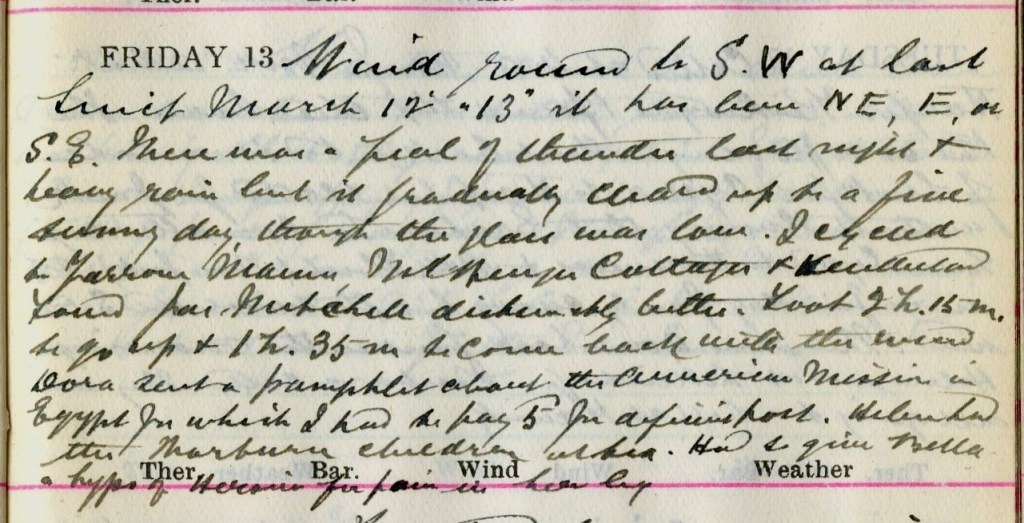 Ther. Bar. Wind
FRIDAY 13 Wind round to S.W at last
Since March 12 "13" it has been NE, E, or
S.E. There was a peal of thunder last night +
heavy rain but it gradually cleared up to a fine
sunny day though the glass was low. I cycled
to Yarrow Manse Cottages +
Found Mitchell decidedly better. Took 2 h. 15 m.
to go up + 1 h. 35 m to come back with the wind
Dora sent a pamphlet about the American Mission in
Egypt for which I had to pay 5 for deficient post. Helen had
the children to tea. Had to give Bella
a hypo of Heroin for pain in her leg
Ther. Bar. Wind Weather